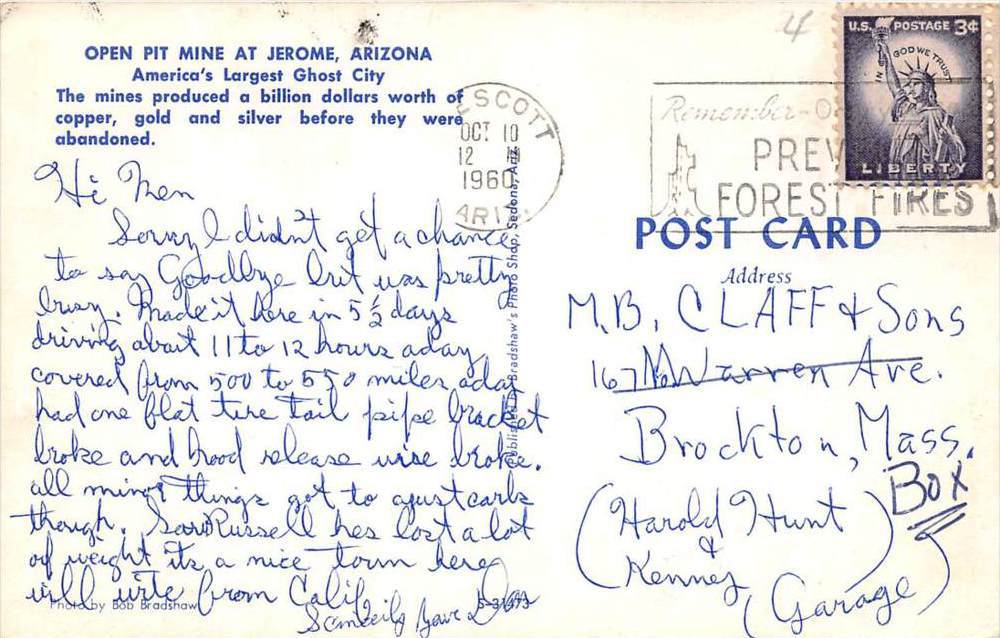 OPEN PIT MINE AT JEROME, ARIZONA
America's Largest Ghost City
The mines produced a billion dollars worth of
copper, gold and silver before they were
abandoned.
Hi Men
Sorry I didn't get a chance
to say Goodbye but was pretty
busy. Made it here in 5 1/2 days
driving about 11 to 12 hours a day
covered from 500 to 550 miles a day
had one flat tire tail pipe bracket
broke and hood release wire broke.
all minor things got to ajust carbs
though. Russell hes lost a lot
of weight its a nice town here
will write from Calif
Photo by Bob Bradshaw
Published by Bradshaw's Photo Shop, Sedona, Ariz.
ESCOTT
OCT 10
12 M
1960
ARIZ.
4
Remember-O
PREV
FOREST FIRES
U.S. POSTAGE 3¢
IN GOD WE TRUST
LIBERTY
POST CARD
Address
M.B. CLAFF & Sons
167 N. Warren Ave.
Brockton, Mass.
Box
(Harold Hunt
&
Kenney
Garage)